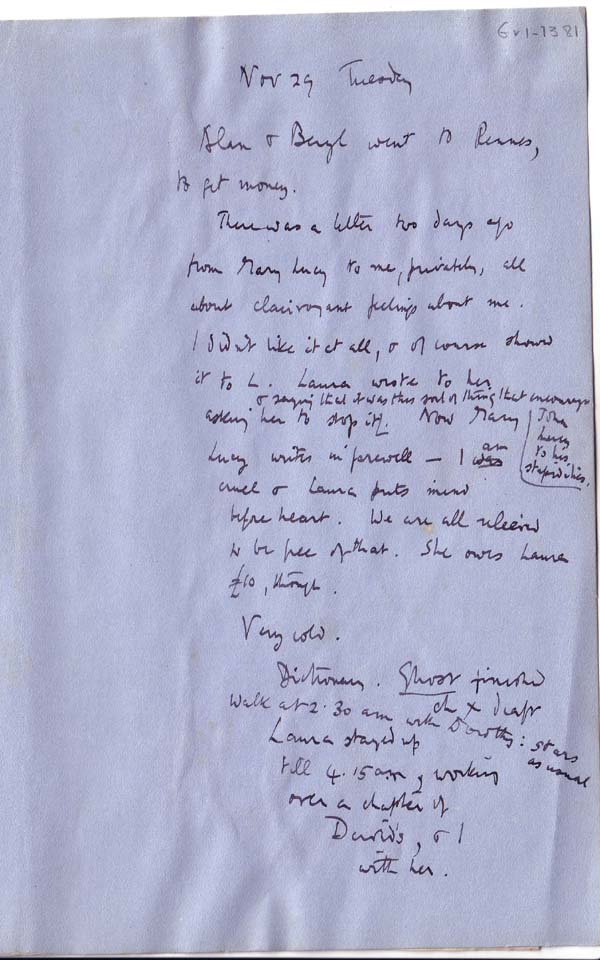 Gv1-1381
Nov 29 Tuesday
Alan & Beryl went to Rennes,
to get money.
There was a letter two days ago
from Mary Lucy to me, privately, all
about clairvoyant feelings about me.
I didn't like it at all, & of course showed
it to L. Laura wrote to her
& saying that it was this sort of thing that encourages
asking her to stop it. Now Mary
John
Lucy
to his
stupidities.
Lucy writes in farewell — I was am
cruel & Laura puts mind
before heart. We are all relieved
to be free of that. She owes Laura
£10, though.
Very cold.
Dictionary. Ghost finished
ch X draft
Walk at 2.30 am with Dorothy: stars
as usual
Laura stayed up
till 4.15 am, working
over a chapter of
David's, & I
with her.